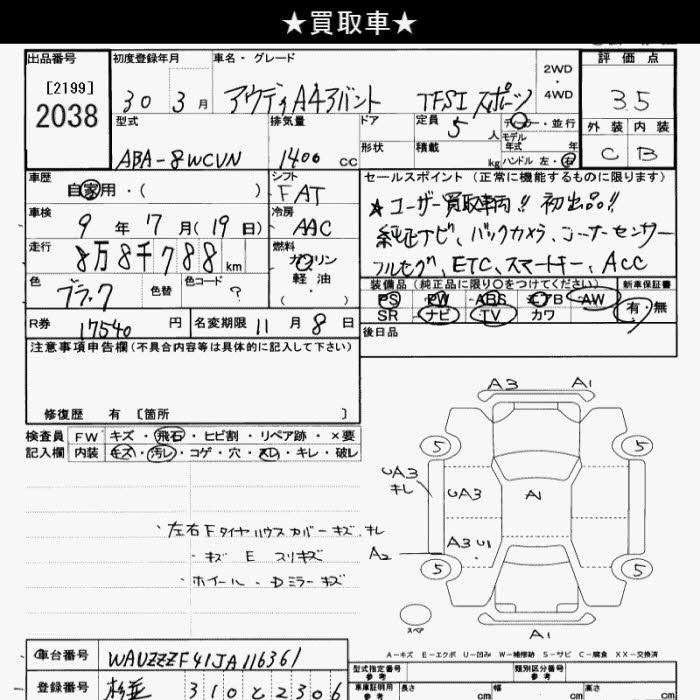 ★買取車★
出品番号 初度登録年月 車名・グレード 2WD・4WD 評価点
[2199]
2038 30 3月 アウディA4アバント TFSI スポーツ 3.5
型式 排気量 ドア 定員 5人 ディーラー・並行 外装 内装
モデル年式 年
ABA-8WCVN 1400 cc 形状 積載 kg ハンドル 左・右 C B
車歴 自家用・( ) シフト FAT
セールスポイント (正常に機能するものに限ります)
★ユーザー買取車両!! 初出品!!
車検 9年7月(19日) 冷房 AAC
純正ナビ、バックカメラ、コーナーセンサー
走行 8万8千788km 燃料 ガソリン・軽油・( )
フルセグ、ETC、スマートキー、ACC
色 ブラック 色替 色コード ?
装備品 (純正品に限り○をつけてください) 新車保証書
PS PW ABS エアB AW 有・無
SR ナビ TV カワ
R券 17540円 名変期限 11月8日
後日品
注意事項申告欄(不具合内容等は具体的に記入して下さい)
修復歴 有 [箇所 ]
検査員記入欄 FW キズ・飛石・ヒビ割・リペア跡・×要
内装 キズ・汚レ・コゲ・穴・スレ・キレ・破レ
A3 A1
5 5
UA3 キレ UA3 A1
A2 A3 U1
5 5
スペア A1
・左右Fタイヤハウスカバーキズ、キレ
・キズ E スリキズ
・ホイール・Dミラーキズ
A-キズ E-エクボ U-凹み W-補修跡 S-サビ C-腐食 XX-交換済
車台番号 WAUZZZF41JA116361
型式指定番号 参考 類別区分番号 参考
登録番号 310 2306
車庫証明用 参考 長さ cm 幅 cm 高さ cm